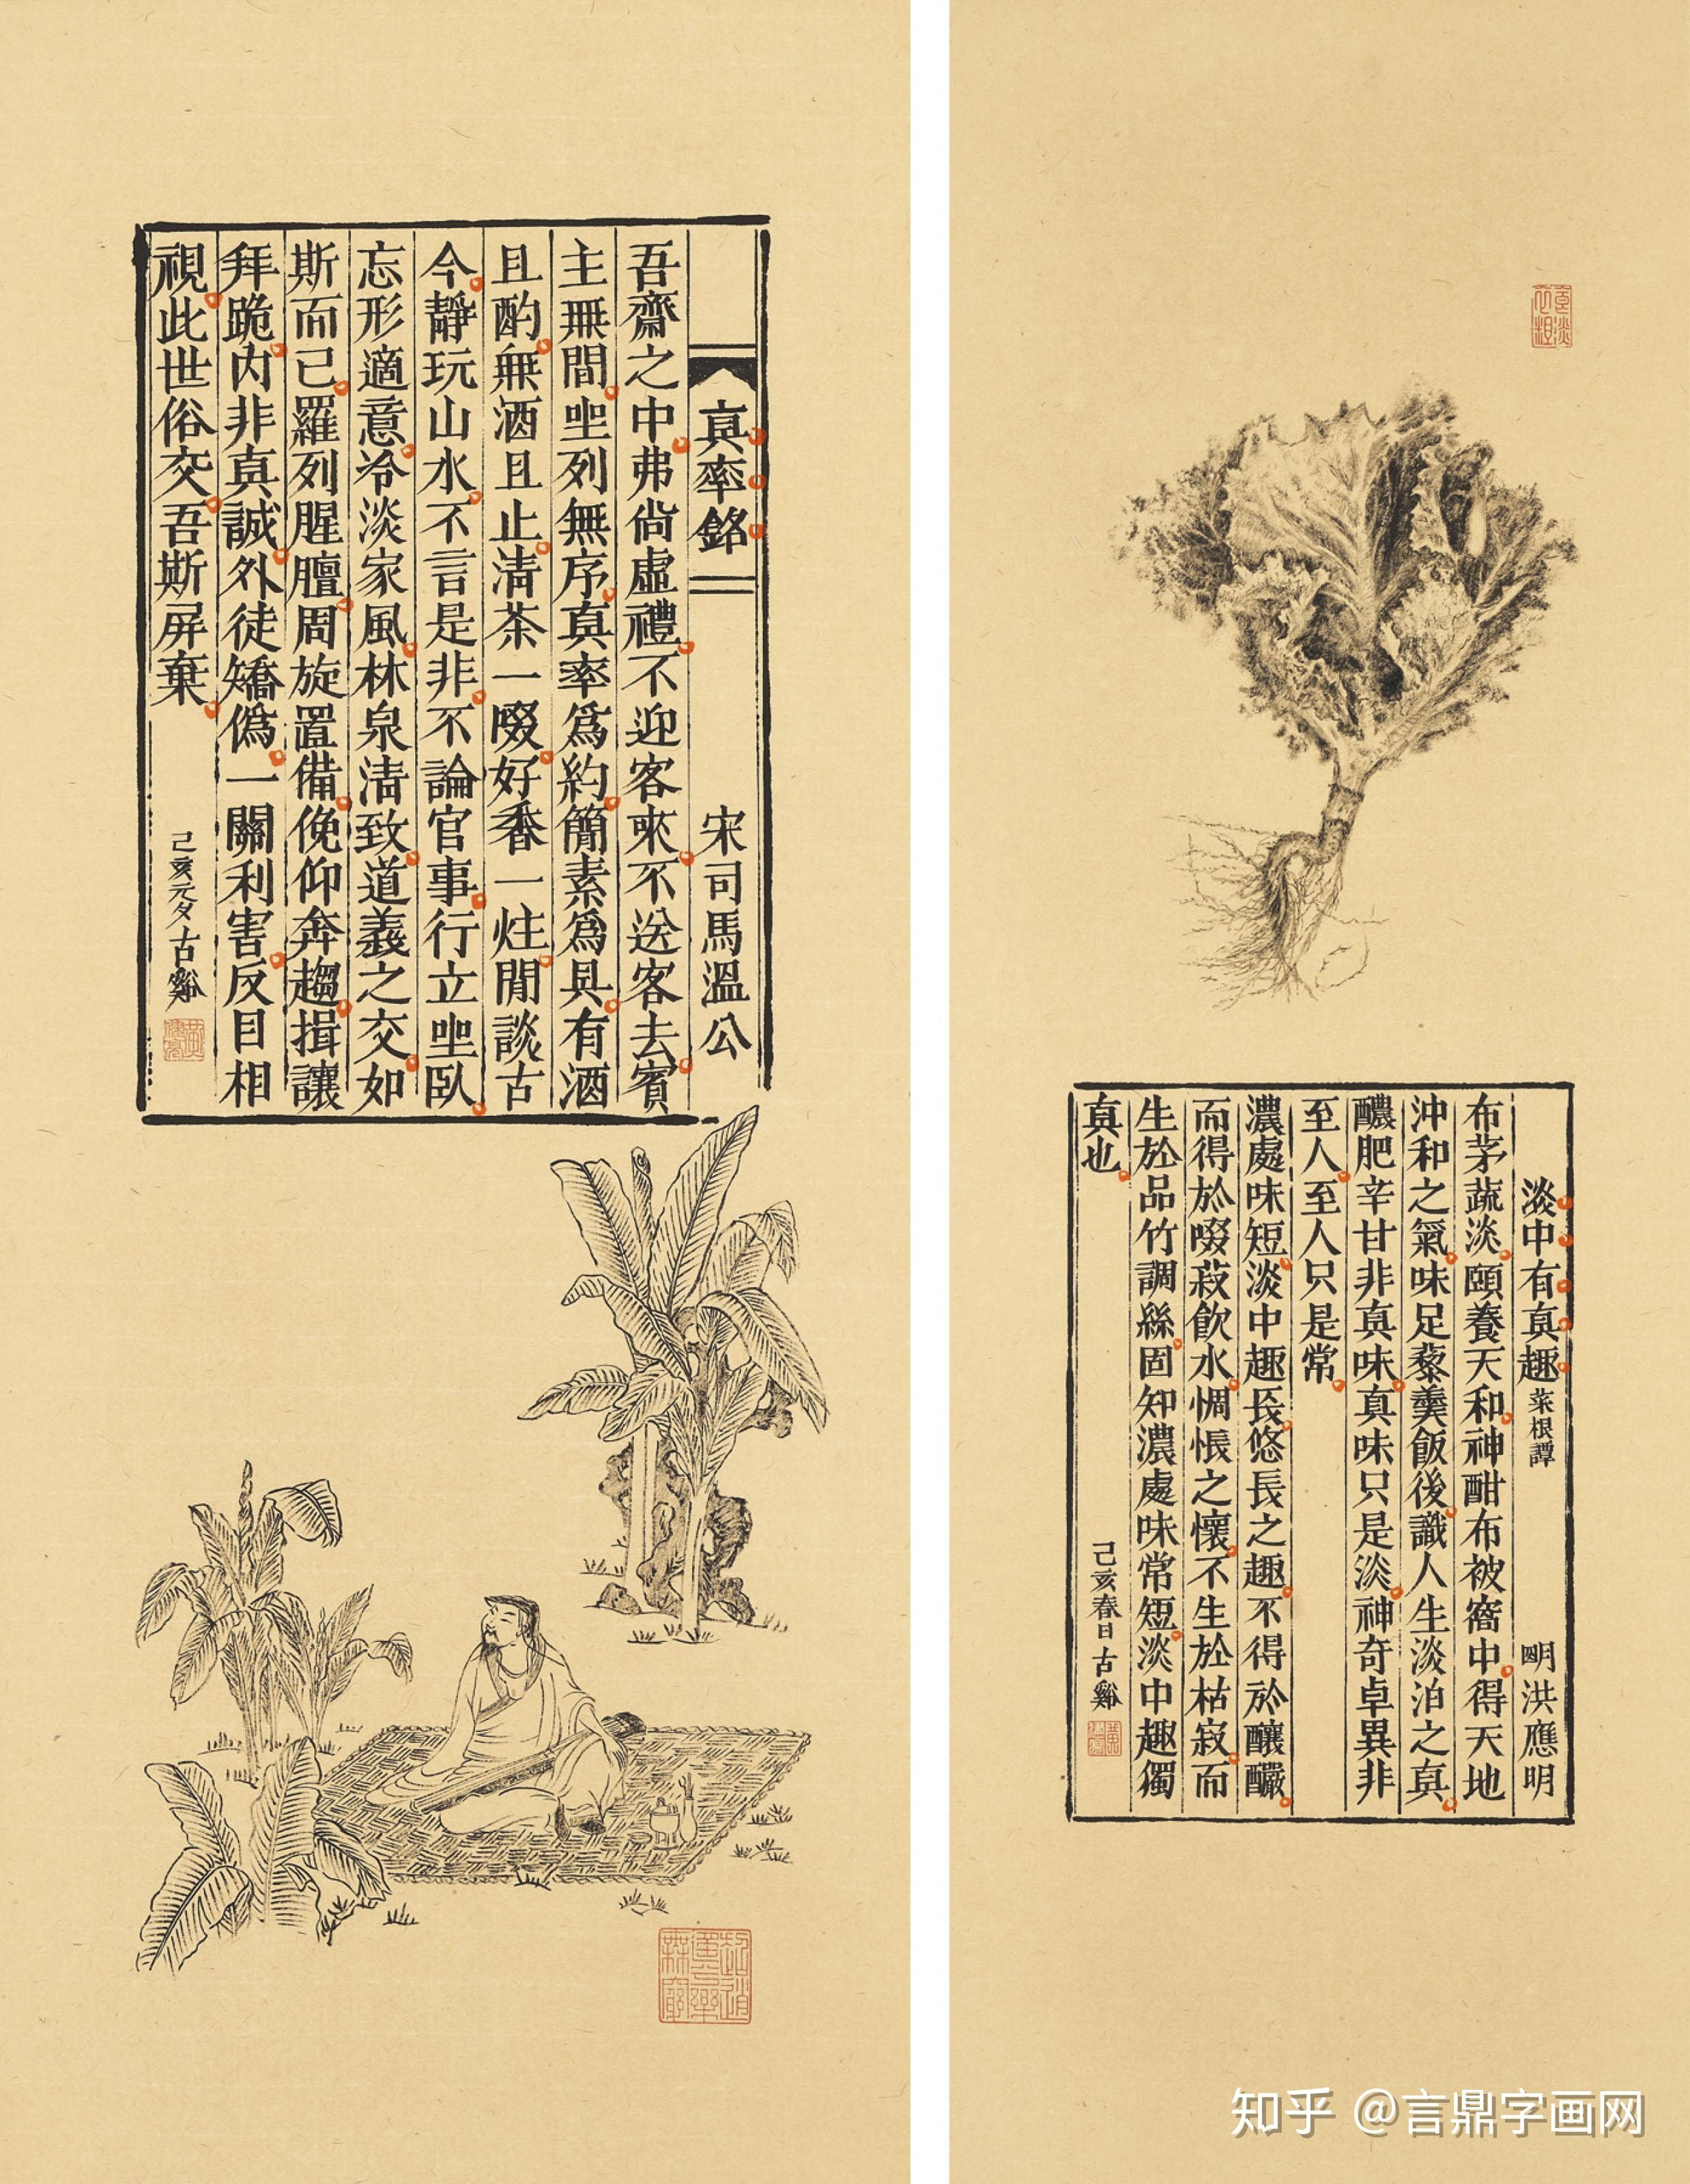 真率銘　宋司馬溫公
吾齋之中弗尚虛禮不迎客來不送客去賓
主無間坐列無序真率為約簡素為具有酒
且酌無酒且止清茶一啜好香一炷閒談古
今靜玩山水不言是非不論官事行立坐臥
忘形適意冷淡家風林泉清致道義之交如
斯而已羅列腥膻周旋置備俛仰奔趨揖讓
拜跪內非真誠外徒矯偽一關利害反目相
視此世俗交吾斯屏棄
己亥元夕古谿
淡中有真趣 菜根譚　明洪應明
布茅蔬淡頤養天和神酣布被窩中得天地
沖和之氣味足藜羹飯後識人生淡泊之真
醲肥辛甘非真味真味只是淡神奇卓異非
至人至人只是常
濃處味短淡中趣長悠長之趣不得於釀釅
而得於啜菽飲水惆悵之懷不生於枯寂而
生於品竹調絲固知濃處味常短淡中趣獨
真也
己亥春日古谿
知乎 @言鼎字画网